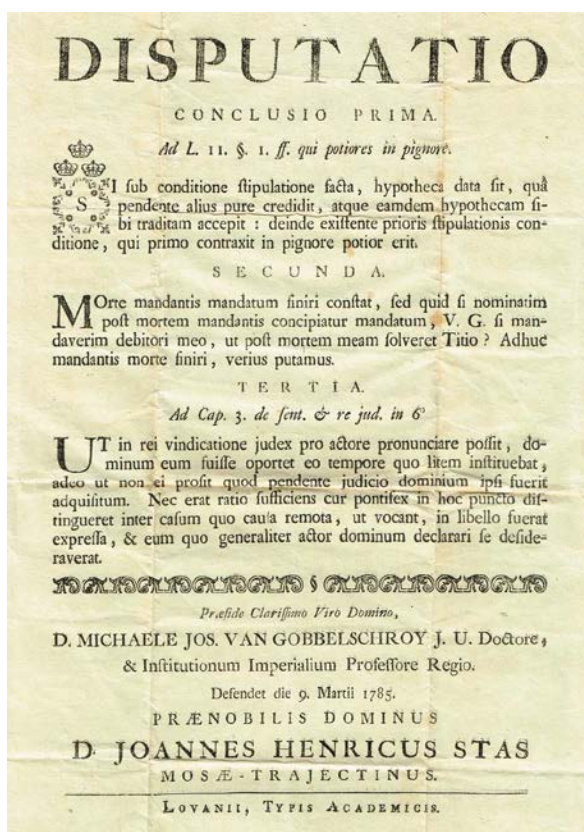 DISPUTATIO
CONCLUSIO PRIMA.
Ad L. 11. §. 1. ff. qui potiores in pignore.
SI ſub conditione ſtipulatione facta, hypotheca data ſit, quâ
pendente alius pure credidit, atque eamdem hypothecam ſi-
bi traditam accepit : deinde exiſtente prioris ſtipulationis con-
ditione, qui primo contraxit in pignore potior erit.
SECUNDA.
MOrte mandantis mandatum finiri conſtat, ſed quid ſi nominatim
poſt mortem mandantis concipiatur mandatum, V. G. ſi man-
daverim debitori meo, ut poſt mortem meam ſolveret Titio ? Adhuc
mandantis morte finiri, verius putamus.
TERTIA.
Ad Cap. 3. de ſent. & re jud. in 6°
UT in rei vindicatione judex pro actore pronunciare poſſit, do-
minum eum fuiſſe oportet eo tempore quo litem inſtituebat,
adeo ut non ei proſit quod pendente judicio dominium ipſi fuerit
adquiſitum. Nec erat ratio ſufficiens cur pontifex in hoc puncto diſ-
tingueret inter caſum quo cauſa remota, ut vocant, in libello fuerat
expreſſa, & eum quo generaliter actor dominum declarari ſe deſide-
raverat.
§
Præſide Clariſſimo Viro Domino,
D. MICHAELE JOS. VAN GOBBELSCHROY J. U. Doctore,
& Inſtitutionum Imperialium Profeſſore Regio.
Defendet die 9. Martii 1785.
PRÆNOBILIS DOMINUS
D. JOANNES HENRICUS STAS
MOSÆ-TRAJECTINUS.
LOVANII, TYPIS ACADEMICIS.